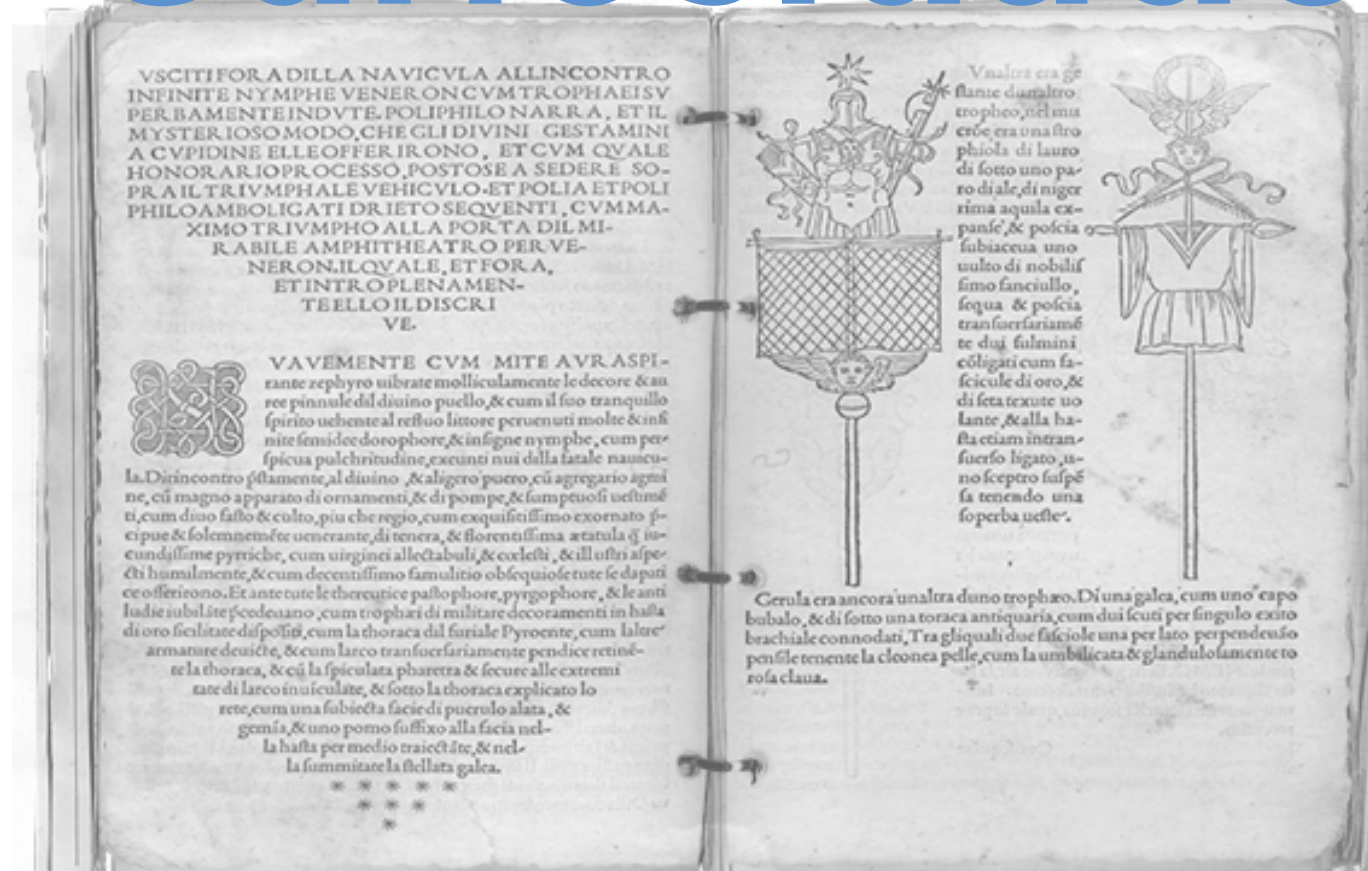 VSCITI FORA DILLA NAVICVLA ALLINCONTRO
INFINITE NYMPHE VENERON CVM TROPHAEI SV
PERBAMENTE INDVTE. POLIPHILO NARRA, ET IL
MYSTERIOSO MODO, CHE GLI DIVINI GESTAMINI
A CVPIDINE ELLE OFFERIRONO, ET CVM QVALE
HONORARIO PROCESSO, POSTOSE A SEDERE SO-
PRA IL TRIVMPHALE VEHICVLO. ET POLIA ET POLI
PHILO AMBO LIGATI DRIETO SEQVENTI, CVM MA-
XIMO TRIVMPHO ALLA PORTA DIL MI-
RABILE AMPHITHEATRO PERVE-
NERON. ILQVALE, ET FORA,
ET INTRO PLENAMEN-
TE ELLO IL DISCRI
VE.
VAVEMENTE CVM MITE AVRA SPI-
rante zephyro uibrate molliculamente le decore & au
ree pinnule dil diuino puello, & cum il suo tranquillo
spirito uehente al refluo littore peruenuti molte & infi
nite semidee dorophore, & insigne nymphe, cum per-
spicua pulchritudine, exeunti nui dilla fatale nauicu-
la. Dirincontro p̃stamente, al diuino, & aligero puero, cū agregario agmi
ne, cū magno apparato di ornamenti, & di pompe, & sumptuosi uestimē
ti, cum diuo fasto & culto, piu che regio, cum exquisitissimo exornato p̃-
cipue & solemnemēte uenerante, di tenera, & florentissima ætatula q̃ iu-
cundissime pyrriche, cum uirginei allectabuli, & cœlesti, & illustri aspe-
cti humilmente, & cum decentissimo famulitio obsequiose tute se dapati
ce offerirono. Et ante tute le thereutice pastophore, pyrgophore, & le anti
ludie iubilāte p̃cedeuano, cum trophæi di militare decoramenti in hasta
di oro sicilitate dispositi, cum la thoraca dil furiale Pyroente, cum laltre
armature deuicte, & cum larco transuersariamente pendice retinē-
te la thoraca, & cū la spiculata pharetra & secure alle extremi
tate di larco inusculate, & sotto la thoraca explicato lo
rete, cum una subiecta facie di puerulo alata, &
gemia, & uno pomo suffixo alla facia nel-
la hasta per medio traiectāte, & nel-
la summitate la stellata galea.
Vnaltra era ge
stante dunaltro
tropheo, nel mu
crōe era una stro
phiola di lauro
di sotto uno pa-
ro di ale, di niger
rima aquila ex-
panse, & poscia
subiaceua uno
uulto di nobilis
simo fanciullo,
sequa & poscia
transuersariamē
te dui fulmini
cōligati cum fa-
scicule di oro, &
di seta texute uo
lante, & alla ha-
sta etiam intran-
suerso ligato, u-
no sceptro suspē
sa tenendo una
soperba ueste.
Gerula era ancora unaltra duno trophæo. Di una galea, cum uno capo
bubalo, & di sotto una toraca antiquaria, cum dui scuti per singulo exito
brachiale connodati, Tra gliquali due fasciole una per lato perpendeuso
pensile tenente la cleonea pelle, cum la umbilicata & glandulosamente to
rosa claua.